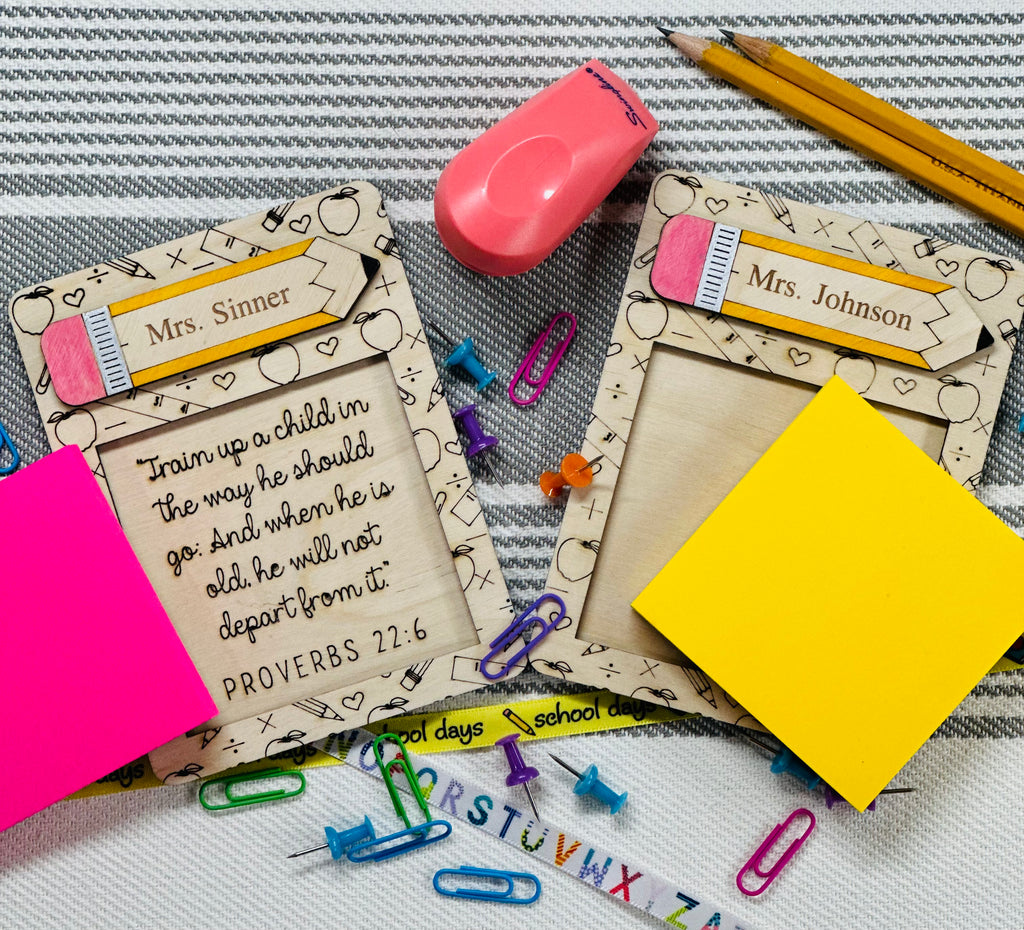 Swingline
U.S.A. TITAN
Mrs. Sinner
Mrs. Johnson
"Train up a child in
the way he should
go: And when he is
old, he will not
depart from it."
PROVERBS 22:6
school days
school days
days
N O Q R S T U V W X Y Z A